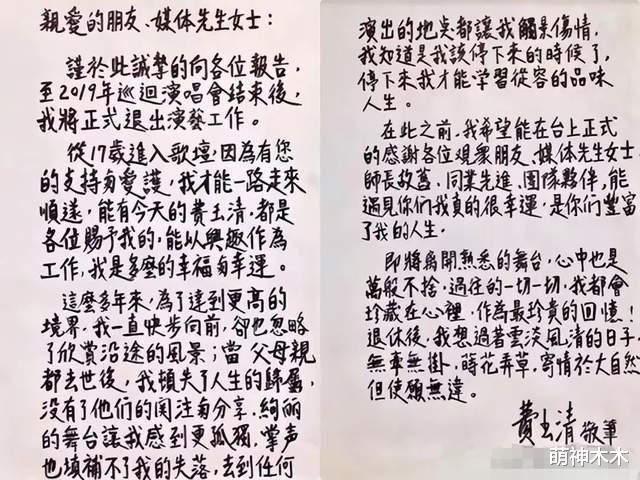 親愛的朋友、媒体先生女士：
謹於此誠摯的向各位報告，
至2019年巡迴演唱會結束後，
我將正式退出演藝工作。
從17歲進入歌壇，因為有您
的支持与愛護，我才能一路走來
順遂，能有今天的費玉清，都是
各位賜予我的，能以興趣作為
工作，我是多麼的幸福与幸運。
這麼多年來，為了達到更高的
境界，我一直快步向前，卻也忽略
了欣賞沿途的風景；當父母親
都去世後，我頓失了人生的歸屬，
沒有了他們的関注与分享，絢麗
的舞台讓我感到更孤獨，掌声
也填補不了我的失落，去到任何
演出的地点都讓我觸景傷情，
我知道是我該停下來的時候了，
停下來我才能学習從容的品味
人生。
在此之前，我希望能在台上正式
的感謝各位观衆朋友、媒体先生女士、
師長故舊、同業先進、團隊夥伴，能
遇見你們我真的很幸運，是你們豐富
了我的人生。
即將離開熟悉的舞台，心中也是
萬般不捨，過往的一切一切，我都會
珍藏在心裡，作為最珍貴的回憶！
退休後，我想過著雲淡風清的日子，
無車無掛，蒔花弄草，寄情於大自然
但使願無違。
費玉清 敬筆
萌神木木